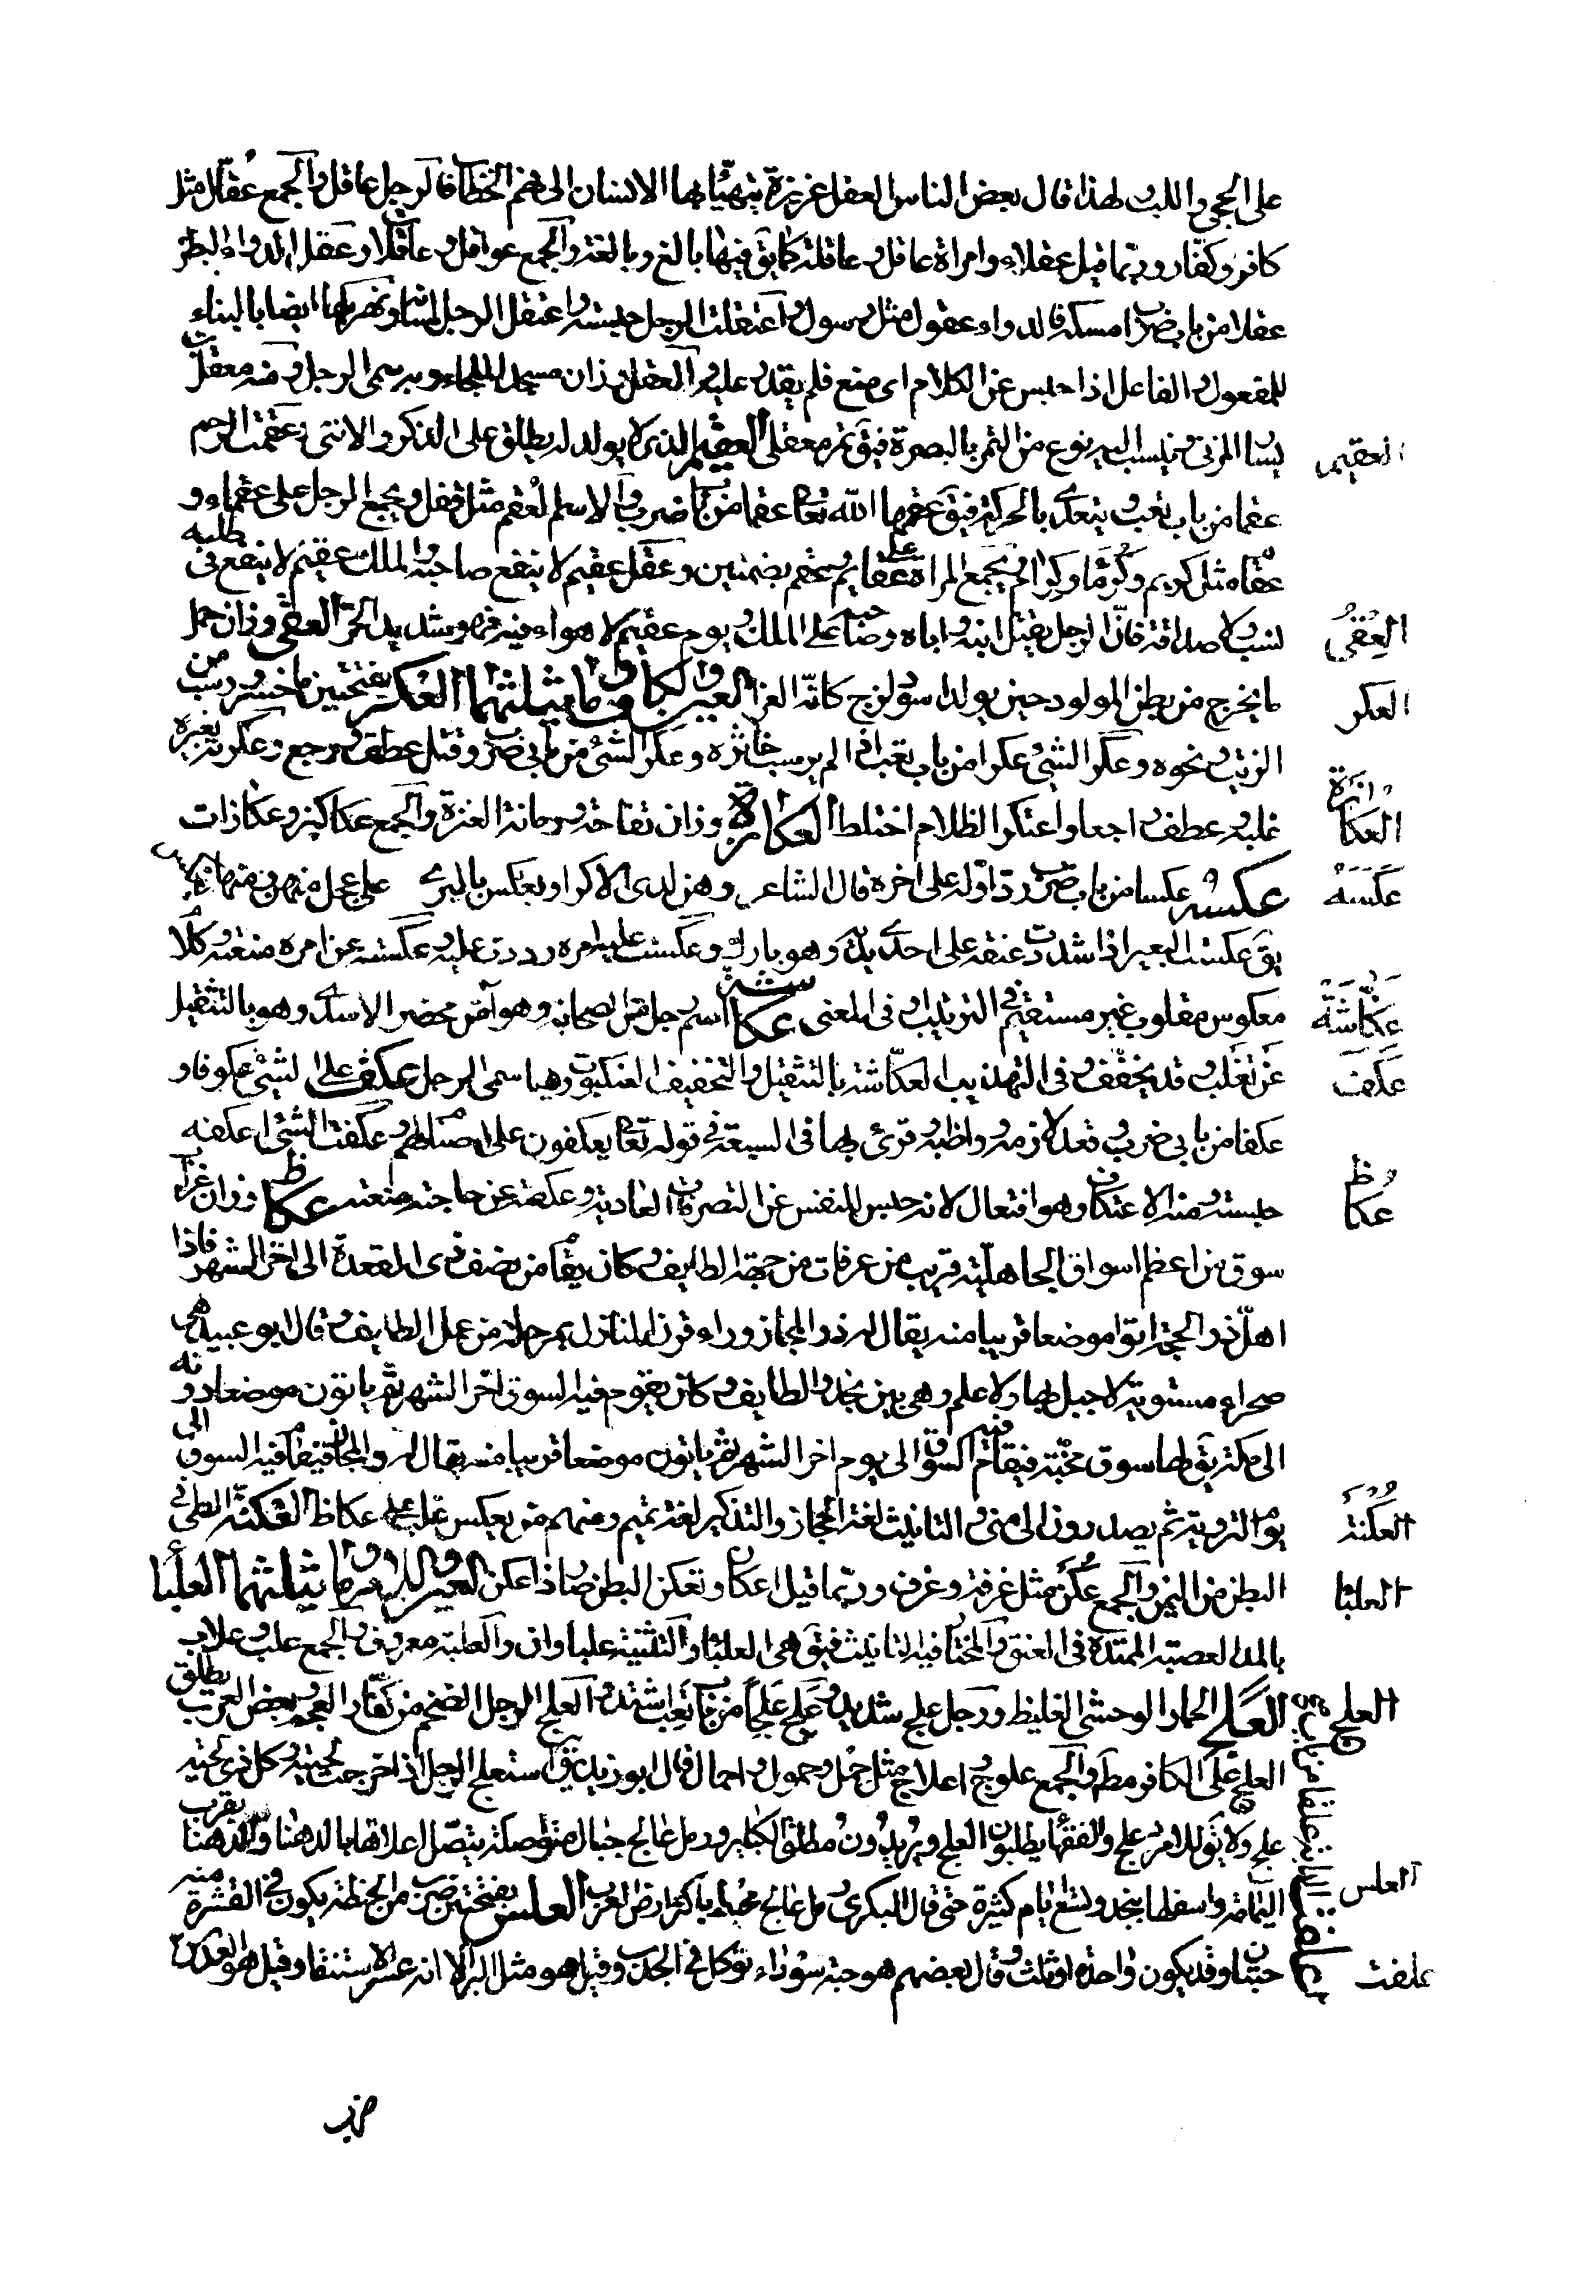 على الحجى واللب لهذا قال بعض الناس العقل غريزة يتهيأ بها الانسان الى فهم الخطاب فالرجل عاقل والجمع عقال مثل
كافر وكفار وربما قيل عقلاء وامراة عاقل وعاقلة كما يق فيها بالغ وبالغة والجمع عواقل وعاقلات وعقل الدواء البطن
عقلا من باب ضرب امسكه فالدواء عقول مثل رسول واعتقلت الرجل حبسته واعتقل الرجل لسانه ايضا بالبناء
للمفعول والفاعل اذا حبس عن الكلام اى منع فلم يقدر عليه والمعقل وزان مسجد الملجاء وبه سمى الرجل ومنه معقل بن
يسار المزنى وينسب اليه نوع من التمر بالبصرة فيق تمر معقلى العقيم الذى لا يولد له يطلق على الذكر والانثى وعقمت الرحم
العقيم
عقما من باب تعب ويتعدى بالحركة فيق عقمها الله تعا عقما من باب ضرب والاسم العقم مثل قفل ويجمع الرجل على عقماء و
عقام مثل كريم وكرما وكرام ويجمع المراة على عقايم وعقم بضمتين وعقل عقيم لا ينفع صاحبه والملك عقيم لا ينفع فى طلبه
نسب ولا صداقة فان الرجل يقتل ابنه واباه على الملك ويوم عقيم لا هواء فيه فهو شديد الحر العقى وزان حمل
العقى
ما يخرج من بطن المولود حين يولد اسود لزج كانه الغرا العين والكاف وما يثلثهما العكر بفتحتين ما خثر ورسب من
العكر
الزيت ونحوه وعكر الشئ عكرا من باب تعب اذا لم يرسب خاثره وعكر الشئ من بابى ضرب وقتل عطف ورجع وعكر به بعيره
غلبه وعطف راجعا واعتكر الظلام اختلط العكازة وزان تفاحة ورمانة العنزة والجمع عكاكيز وعكازات
العكازة
عكسه عكسا من باب ضرب رد اوله على اخره قال الشاعر وهن لدى الاكوار يعكسن بالبرى على عجل منها ومنها
عكسه
يق عكست البعير اذا شددت عنقه على احدى يديه وهو بارك وعكست عليه امره رددت عليه وعكسته عن امره منعته وكلام
معكوس مقلوب غير مستقيم فى الترتيب او فى المعنى عكاشة اسم رجل من الصحابة وهو ابن محصن الاسدى وهو بالتثقيل
عكاشة
عن ثعلب وقد يخفف وفى التهذيب العكاشة بالتثقيل والتخفيف العنكبوت وبها سمى الرجل عكف على الشئ عكوفا و
عكف
عكفا من بابى ضرب وقعد لازمه وواظبه وقرئ بها فى السبعة فى قوله تعا يعكفون على اصنام لهم وعكفت الشئ اعكفه
حبسته ومنه الاعتكاف وهو افتعال لانه حبس النفس عن التصرفات العادية وعكفته عن حاجته منعته عكاظ وزان غراب
عكاظ
سوق من اعظم اسواق الجاهلية قريب من عرفات من جهة الطايف وكان يقام من نصف ذى القعدة الى اخر الشهر فاذا
اهل ذو الحجة اتوا موضعا قريبا منه يقال له ذو المجاز وراء قرن المنازل بمرحلة من عمل الطايف وقال ابو عبيد هى
صحراء مستوية لا جبل بها ولا علم وهى بين نجد والطايف وكان يقوم فيه السوق اخر الشهر ثم ياتون موضعا دونه
الى مكة يق لها سوق مجنة فيقام فيه السوق الى يوم اخر الشهر ثم ياتون موضعا قريبا منه يقال له ذو المجاز فيقام فيه السوق الى
يوم التروية ثم يصدرون الى منى والتانيث لغة الحجاز والتذكير لغة تميم ومنهم من عكاظ العكنة الطى فى
العكنة
البطن من السمن والجمع عكن مثل غرفة وغرف وربما قيل اعكان وتعكن البطن صار ذا عكن العين واللام وما يثلثهما العلبا
العلبا
بالمد العصبة الممتدة فى العنق والمختار فيه التانيث فيق هى العلباء والتثنية علباوان والعلبة معروف والجمع علب وعلاب
العلج الحمار الوحشى الغليظ ورجل علج شديد وعلج علجا من باب تعب اشتد والعلج الرجل الضخم من كفار العجم وبعض العرب يطلق
العلج
العلج على الكافر مطم والجمع علوج واعلاج مثل حمل وحمول واحمال قال ابو زيد يق استعلج الرجل اذا خرجت لحيته وكل ذى لحية
علج ولا يق للامرد علج والفقها يطلقون العلج ويريدون مطلق الكافر ورمل عالج جبال متواصلة يتصل اعلاها بالدهنا والدهنا بقرب
اليمامة واسفلها بنجد ويتسع اتساعا كثيرة حتى قال البكرى رمل عالج محيط باكثر ارض العرب العلس بفتحتين ضرب من الحنطة يكون فى القشرة منه
العلس
حبتان وقد يكون واحدة او ثلث وقال بعضهم هو حبة سوداء توكل فى الجدب وقيل هو مثل البر الا انه عسر الاستنقا وقيل هو العدس
علفت
علفت الدابة علفا من باب ضرب
ضرب